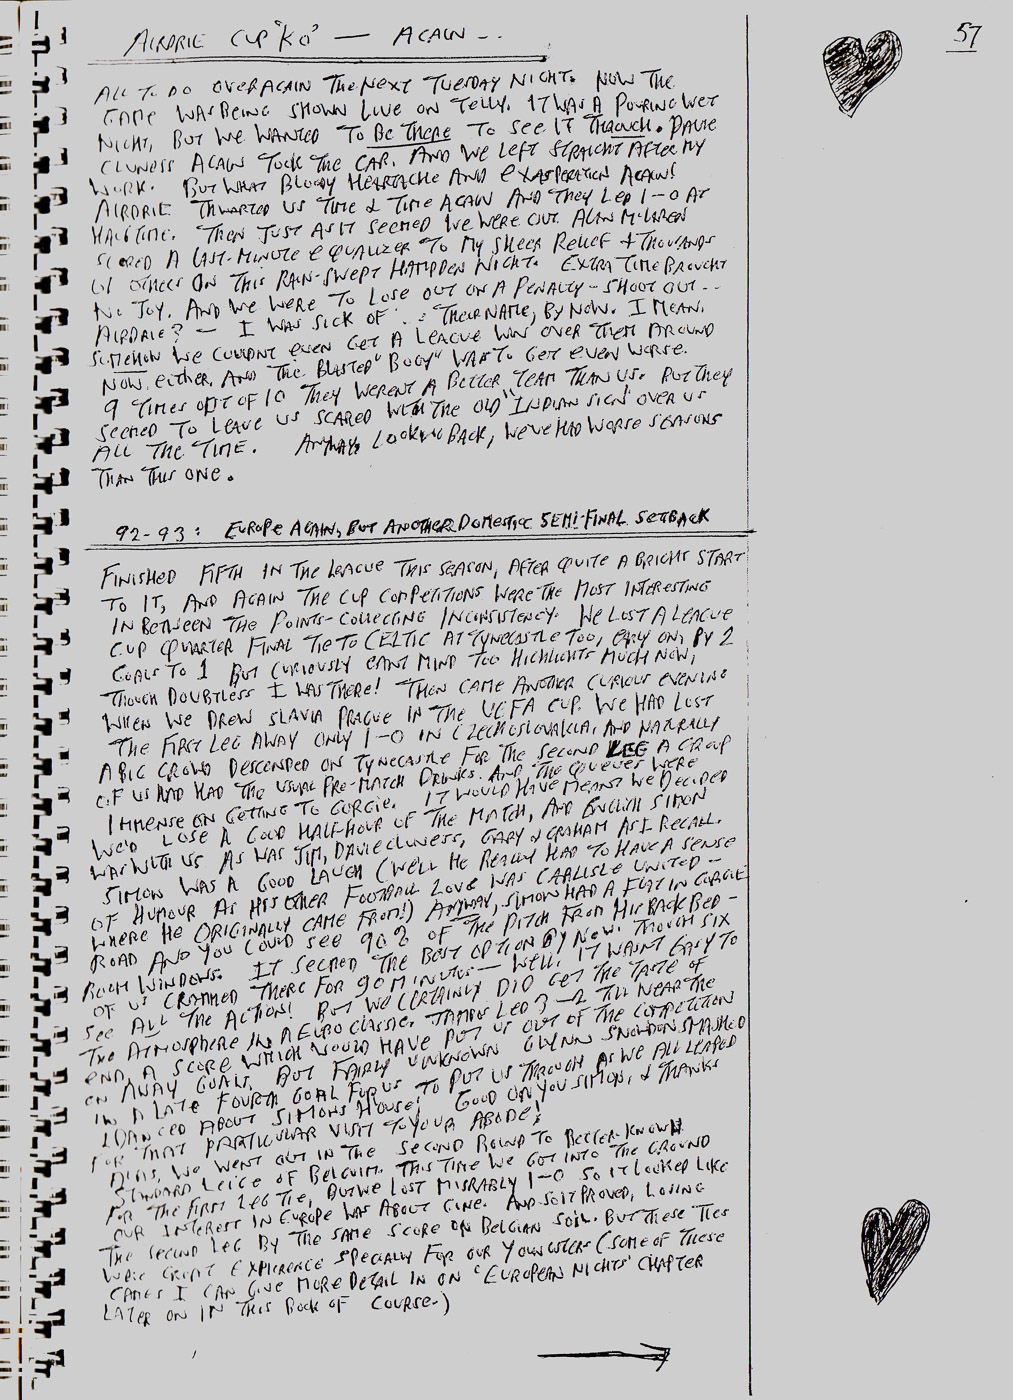 57
AIRDRIE CUP "KO" — AGAIN --
ALL TO DO OVER AGAIN THE NEXT TUESDAY NIGHT. NOW THE
GAME WAS BEING SHOWN LIVE ON TELLY. IT WAS A POURING WET
NIGHT, BUT WE WANTED TO BE THERE TO SEE IT THROUGH. DAVIE
CLUNESS AGAIN TOOK THE CAR. AND WE LEFT STRAIGHT AFTER MY
WORK. BUT WHAT BLOODY HEARTACHE AND EXASPERATION AGAIN!
AIRDRIE THWARTED US TIME & TIME AGAIN AND THEY LED 1-0 AT
HALF TIME. THEN JUST AS IT SEEMED WE WERE OUT ALAN McLAREN
SCORED A LAST-MINUTE EQUALIZER TO MY SHEER RELIEF & THOUSANDS
OF OTHERS ON THIS RAIN-SWEPT HAMPDEN NIGHT. EXTRA TIME BROUGHT
NO JOY. AND WE WERE TO LOSE OUT ON A PENALTY-SHOOT OUT--
AIRDRIE? — I WAS SICK OF THEIR NAME, BY NOW. I MEAN,
SOMEHOW WE COULDNT EVEN GET A LEAGUE WIN OVER THEM AROUND
NOW. EITHER, AND THE BLASTED "BOGY" WAS TO GET EVEN WORSE.
9 TIMES OUT OF 10 THEY WERENT A BETTER TEAM THAN US. BUT THEY
SEEMED TO LEAVE US SCARED WITH THE OLD "INDIAN SIGN" OVER US
ALL THE TIME. ANYWAY LOOKING BACK, WE'VE HAD WORSE SEASONS
THAN THIS ONE.
92-93: EUROPE AGAIN, BUT ANOTHER DOMESTIC SEMI-FINAL SETBACK
FINISHED FIFTH IN THE LEAGUE THIS SEASON, AFTER QUITE A BRIGHT START
TO IT, AND AGAIN THE CUP COMPETITIONS WERE THE MOST INTERESTING
IN BETWEEN THE POINTS-COLLECTING INCONSISTENCY. WE LOST A LEAGUE
CUP QUARTER FINAL TIE TO CELTIC AT TYNECASTLE TOO, EARLY ON, BY 2
GOALS TO 1 BUT CURIOUSLY CANT MIND TOO HIGHLIGHTS MUCH NOW,
THOUGH DOUBTLESS I WAS THERE! THEN CAME ANOTHER CURIOUS EVENING
WHEN WE DREW SLAVIA PRAGUE IN THE UEFA CUP. WE HAD LOST
THE FIRST LEG AWAY ONLY 1-0 IN CZECHOSLOVAKIA, AND NATURALLY
A BIG CROWD DESCENDED ON TYNECASTLE FOR THE SECOND LEG A GROUP
OF US HAD HAD THE USUAL PRE-MATCH DRINKS. AND THE QUEUES WERE
IMMENSE ON GETTING TO GORGIE. IT WOULD HAVE MEANT WE DECIDED
WE'D LOSE A GOOD HALF-HOUR OF THE MATCH, AND ENGLISH SIMON
WAS WITH US AS WAS JIM, DAVIE CLUNESS, GARY & GRAHAM AS I RECALL.
SIMON WAS A GOOD LAUGH (WELL HE REALLY HAD TO HAVE A SENSE
OF HUMOUR AS HIS OTHER FOOTBALL LOVE WAS CARLISLE UNITED -
WHERE HE ORIGINALLY CAME FROM!) ANYWAY, SIMON HAD A FLAT IN GORGIE
ROAD AND YOU COULD SEE 90% OF THE PITCH FROM HIS BACK BED-
ROOM WINDOWS. IT SEEMED THE BEST OPTION BY NOW. THOUGH SIX
OF US CRAMMED THERE FOR 90 MINUTES — WELL! IT WASNT EASY TO
SEE ALL THE ACTION! BUT WE CERTAINLY DID GET THE TASTE OF
THE ATMOSPHERE IN A EURO CLASSIC. JAMBOS LED 3-2 TILL NEAR THE
END, A SCORE WHICH WOULD HAVE PUT US OUT OF THE COMPETITION
ON AWAY GOALS, BUT FAIRLY UNKNOWN GLYNN SNODIN SMASHED
IN A LATE FOURTH GOAL FOR US TO PUT US THROUGH AS WE ALL LEAPED
& DANCED ABOUT SIMONS HOUSE! GOOD ON YOU SIMON, & THANKS
FOR THAT PARTICULAR VISIT TO YOUR ABODE!
ALAS, WE WENT OUT IN THE SECOND ROUND TO BETTER-KNOWN
STANDARD LEIGE OF BELGUIM. THIS TIME WE GOT INTO THE GROUND
FOR THE FIRST LEG TIE, BUT WE LOST MISRABLY 1-0 SO IT LOOKED LIKE
OUR INTEREST IN EUROPE WAS ABOUT GONE. AND SO IT PROVED, LOSING
THE SECOND LEG BY THE SAME SCORE ON BELGIAN SOIL. BUT THESE TIES
WERE GREAT EXPIERENCE SPECIALLY FOR OUR YOUNGSTERS (SOME OF THESE
GAMES I CAN GIVE MORE DETAIL IN ON 'EUROPEAN NIGHTS' CHAPTER
LATER ON IN THIS BOOK OF COURSE.)